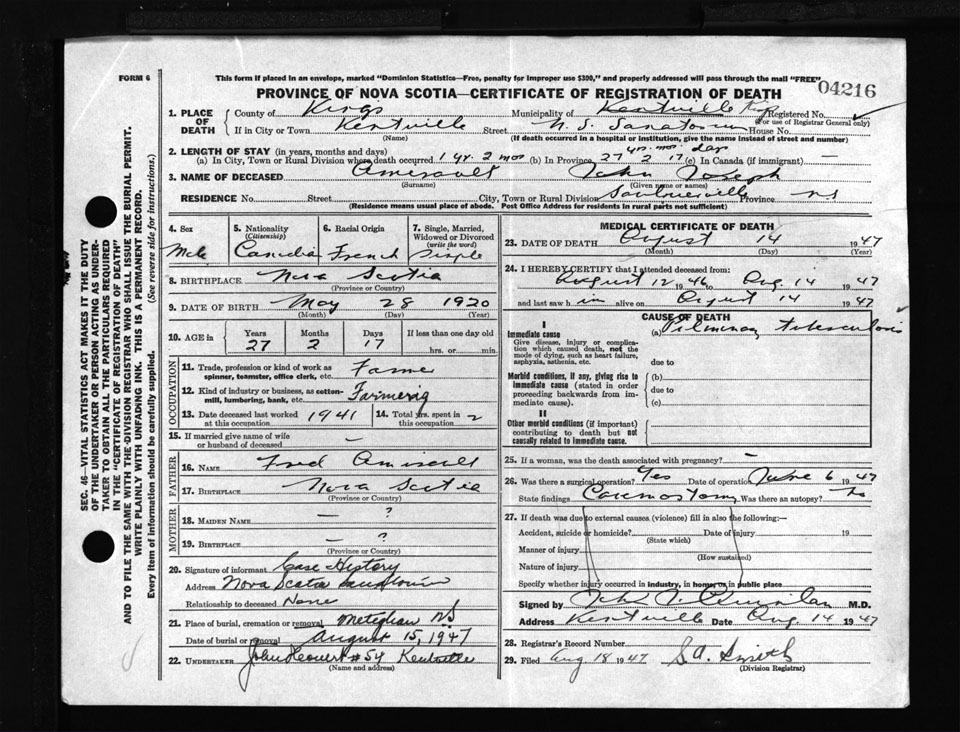 FORM 6
This form if placed in an envelope, marked "Dominion Statistics—Free, penalty for improper use $300," and properly addressed will pass through the mail "FREE"
04216
PROVINCE OF NOVA SCOTIA—CERTIFICATE OF REGISTRATION OF DEATH
1. PLACE OF DEATH
County of Kings Municipality of Kentville Registered No.
(For use of Registrar General only)
If in City or Town Kentville Street N. S. Sanatorium House No.
(Name) (If death occurred in a hospital or institution, give the name instead of street)
2. LENGTH OF STAY (in years, months and days) yrs. mos. days
(a) In City, Town or Rural Division where death occurred 1 yr. 2 mos (b) In Province 27 2 17 (c) In Canada (if immigrant) —
3. NAME OF DECEASED Amirault John Joseph
(Surname) (Given name or names)
RESIDENCE No. Street City, Town or Rural Division Saulnierville Province NS
(Residence means usual place of abode. Post Office Address for residents in rural parts not sufficient)
4. Sex
Male
5. Nationality
(Citizenship)
Canadia
6. Racial Origin
French
7. Single, Married, Widowed or Divorced
(write the word)
Single
8. BIRTHPLACE Nova Scotia
(Province or Country)
9. DATE OF BIRTH May 28 1920
(Month) (Day) (Year)
10. AGE in Years Months Days If less than one day old
27 2 17 hrs. or min.
OCCUPATION
11. Trade, profession or kind of work as
spinner, teamster, office clerk, etc. Farmer
12. Kind of industry or business, as cotton-
mill, lumbering, bank, etc. Farming
13. Date deceased last worked
at this occupation 1941
14. Total yrs. spent in
this occupation 2
15. If married give name of wife
or husband of deceased —
FATHER
16. NAME Fred Amirault
17. BIRTHPLACE Nova Scotia
(Province or Country)
MOTHER
18. MAIDEN NAME — ?
19. BIRTHPLACE — ?
(Province or Country)
20. Signature of informant Case History
Address Nova Scotia Sanatorium
Relationship to deceased None
21. Place of burial, cremation or removal Meteghan NS
Date of burial or removal August 15, 1947
22. UNDERTAKER #54 Kentville
(Name and address)
MEDICAL CERTIFICATE OF DEATH
23. DATE OF DEATH August 14 1947
(Month) (Day) (Year)
24. I HEREBY CERTIFY that I attended deceased from:
August 12 1946 to Aug. 14 1947
and last saw h im alive on August 14 1947
CAUSE OF DEATH
I
Immediate cause
Give disease, injury or complica-
tion which caused death, not the
mode of dying, such as heart failure,
asphyxia, asthenia, etc.
(a) Pulmonary tuberculosis
due to
Morbid conditions, if any, giving rise to
immediate cause (stated in order
proceeding backwards from im-
mediate cause).
(b)
due to
(c)
II
Other morbid conditions (if important)
contributing to death but not
causally related to immediate cause.
25. If a woman, was the death associated with pregnancy? —
26. Was there a surgical operation? Yes Date of operation June 6 1947
State findings Was there an autopsy? No
27. If death was due to external causes (violence) fill in also the following:—
Accident, suicide or homicide? Date of injury 19
(State which)
Manner of injury
(How sustained)
Nature of injury
Specify whether injury occurred in industry, in home, or in public place
Signed by M.D.
Address Kentville Date Aug. 14 1947
28. Registrar's Record Number
29. Filed Aug 18 1947 S A. Smith
(Division Registrar)
SEC. 46—VITAL STATISTICS ACT MAKES IT THE DUTY
OF THE UNDERTAKER OR PERSON ACTING AS UNDER-
TAKER TO OBTAIN ALL THE PARTICULARS REQUIRED
IN THE "CERTIFICATE OF REGISTRATION OF DEATH"
AND TO FILE THE SAME WITH THE DIVISION REGISTRAR WHO SHALL ISSUE THE BURIAL PERMIT.
WRITE PLAINLY WITH UNFADING INK. THIS IS A PERMANENT RECORD.
Every item of information should be carefully supplied. (See reverse side for instructions).